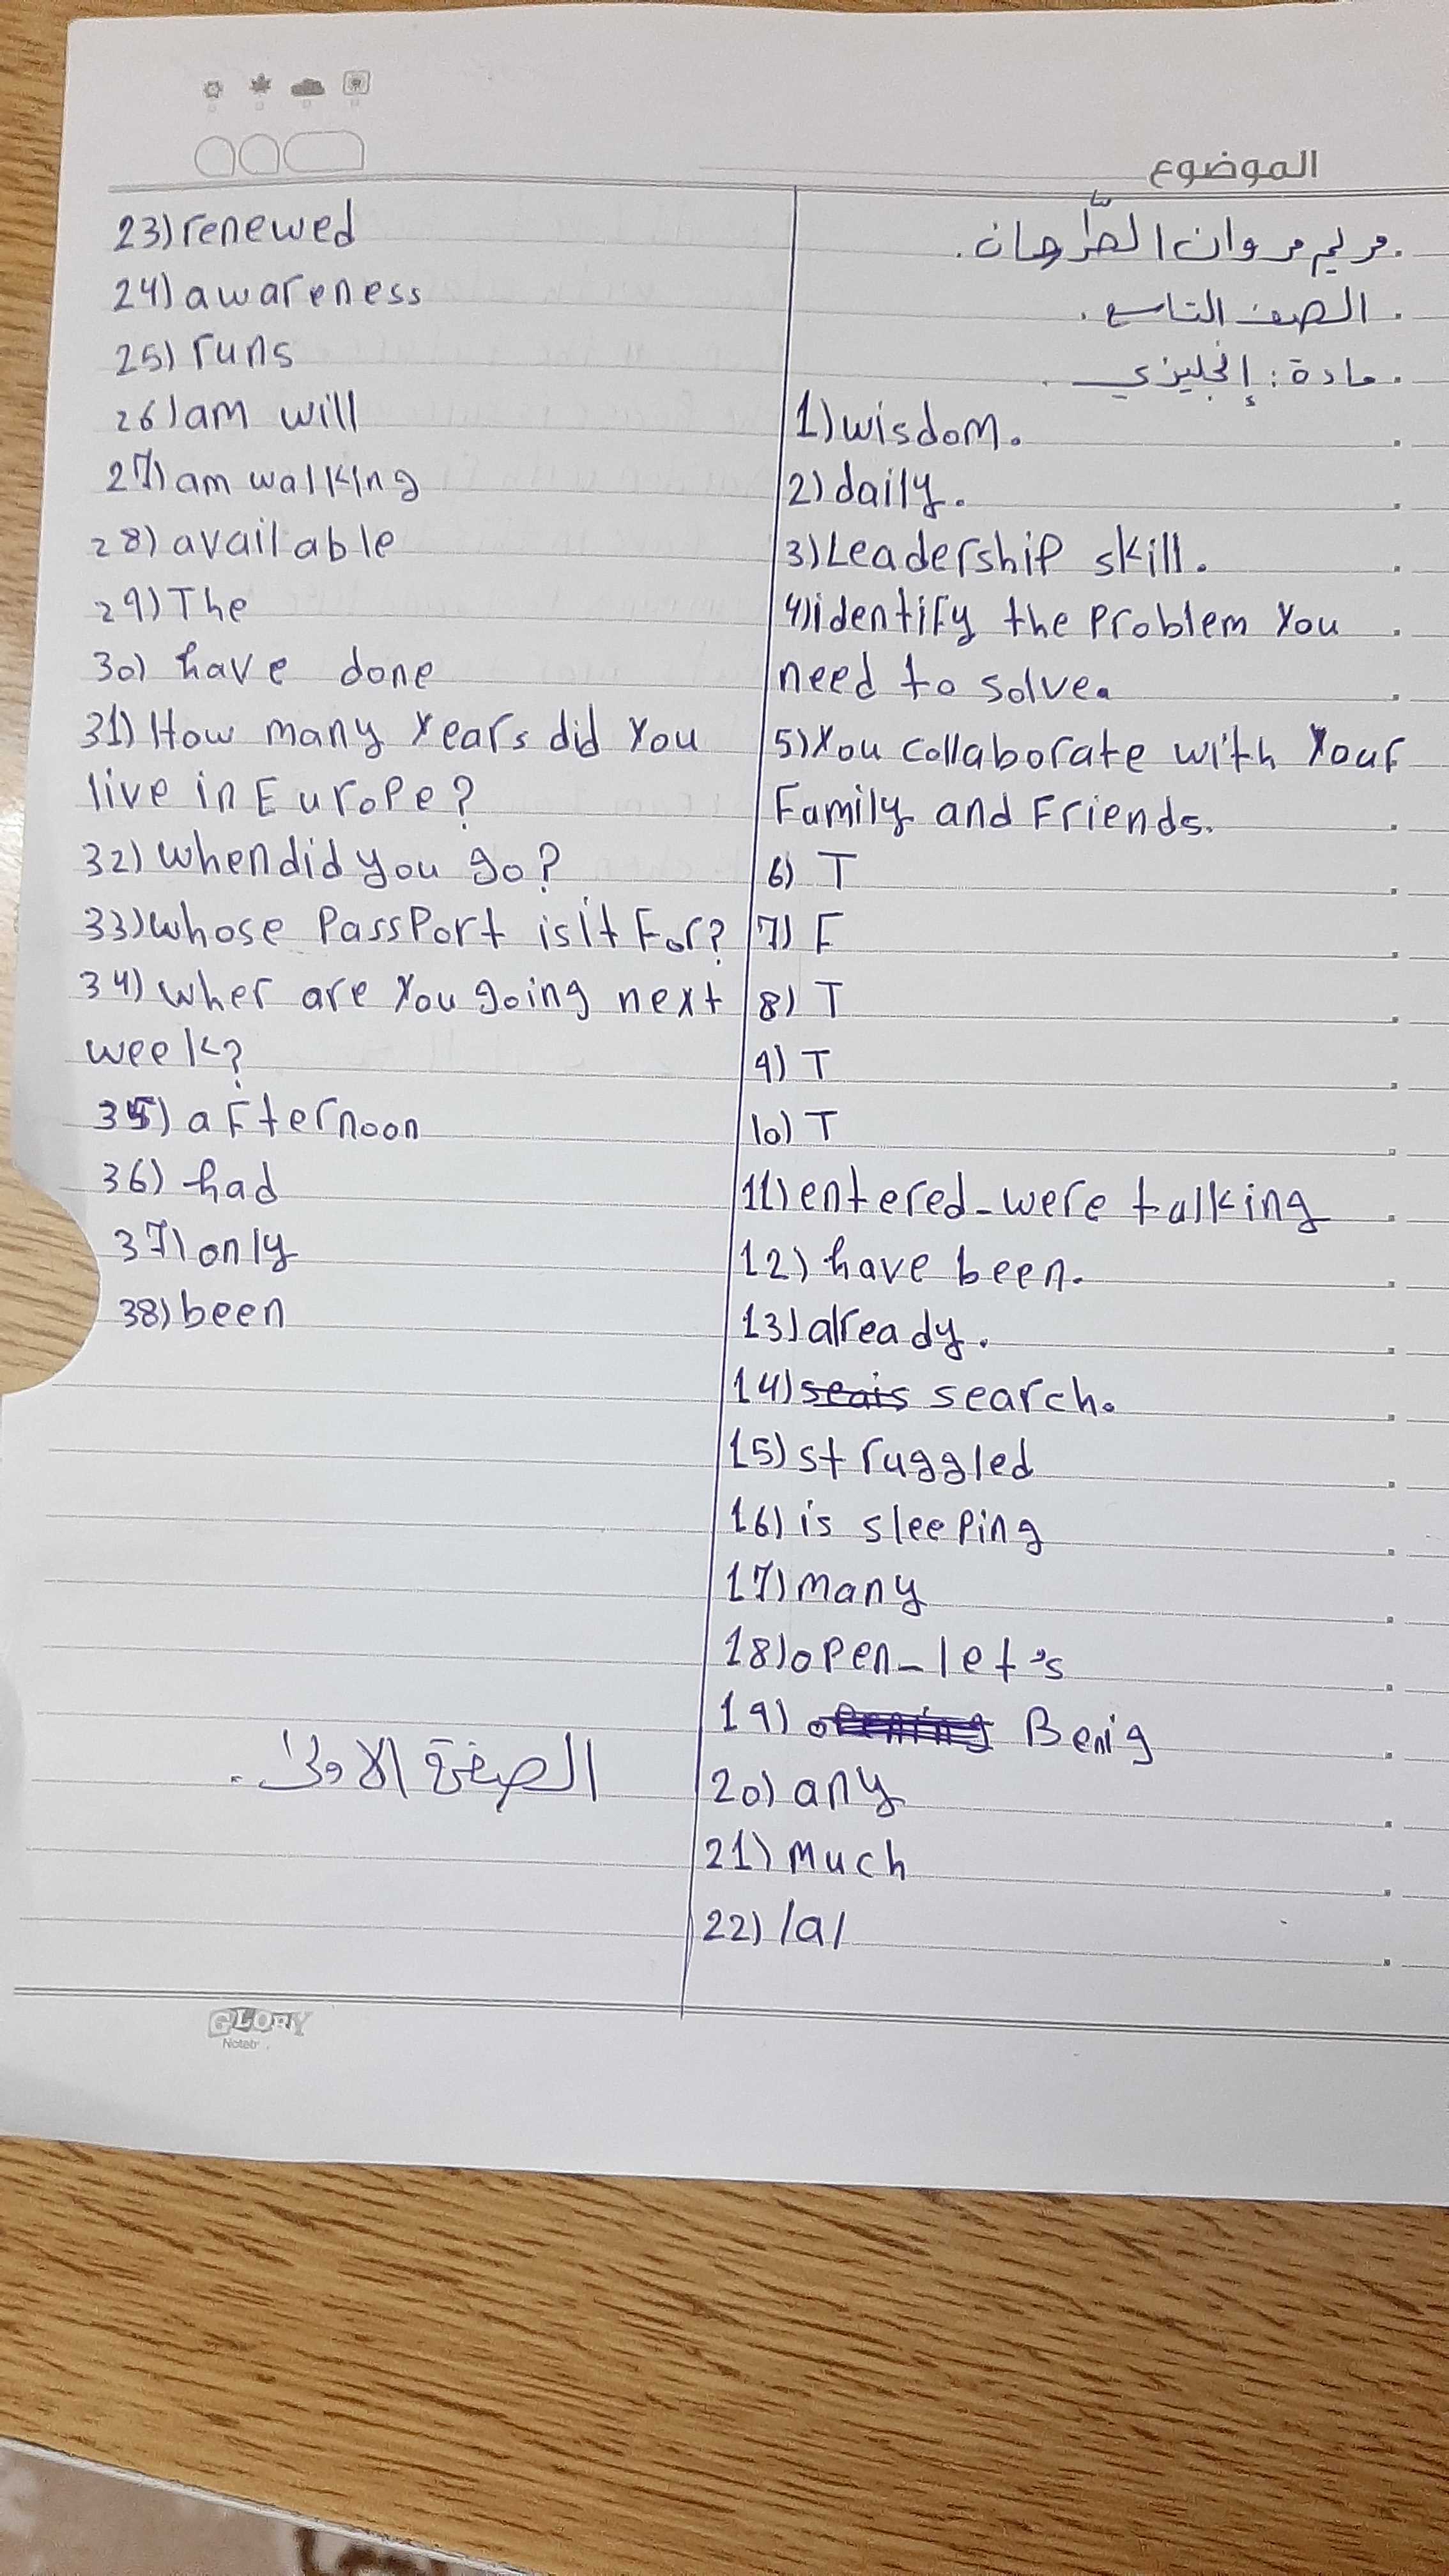 الموضوع
. مريم مروان الطرحان.
. الصف التاسع.
. مادة: إنجليزي.
1) wisdom.
2) daily.
3) Leadership skill.
4) identify the Problem You
need to solve.
5) You collaborate with Your
Family and Friends.
6) T
7) F
8) T
9) T
10) T
11) entered - were talking
12) have been.
13) already.
14) seais search.
15) struggled
16) is sleeping
17) many
18) open - let's
19) opening Benig
20) any
21) Much
22) /a/
23) renewed
24) awareness
25) runs
26) am will
27) am walking
28) available
29) The
30) have done
31) How many Years did You
live in Europe?
32) when did you go?
33) whose PassPort is it For?
34) wher are You going next
week?
35) aFternoon
36) had
37) only
38) been
الصفحة الاولى.
GLORY